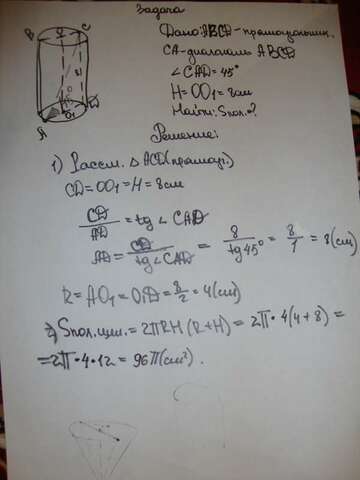 Задача
Дано: ABCD - прямоугольник.
CA - диагональ ABCD
∠CAD = 45°
H = OO₁ = 8см
Найти: Sпол. - ?
B O C
A O₁ D
Решение:
1) Рассм. △ ACD (прямоуг.)
CD = OO₁ = H = 8см
CD/AD = tg ∠ CAD
AD = CD/tg ∠ CAD = 8/tg 45° = 8/1 = 8 (см)
R = AO₁ = O₁D = 8/2 = 4 (см)
2) Sпол. цил. = 2πRH (R+H) = 2π • 4 (4+8) =
= 2π • 4 • 12 = 96π (см²).